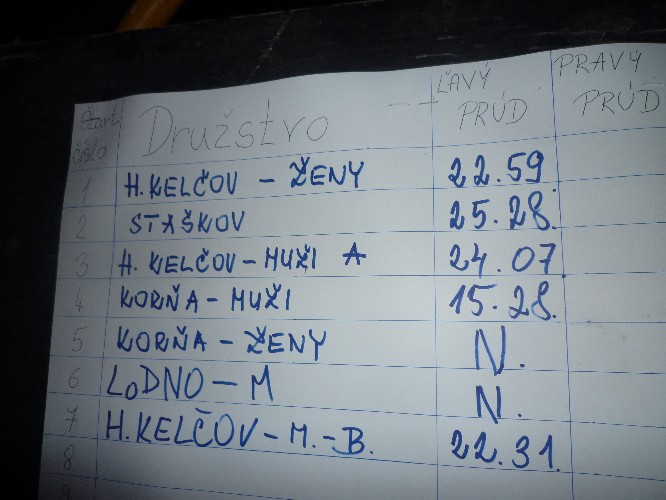 Štart. číslo Družstvo ĽAVÝ PRÚD PRAVÝ PRÚD
1 H. KELČOV - ŽENY 22.59
2 STAŠKOV 25.28.
3 H. KELČOV - MUŽI A 24.07
4 KORŇA - MUŽI 15.28.
5 KORŇA - ŽENY N.
6 LODNO - M N.
7 H. KELČOV - M. - B. 22.31.
8